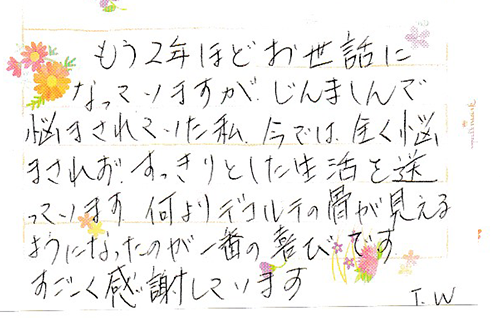 もう2年ほどお世話に
なっていますが、じんましんで
悩まされていた私、今では、全く悩
まされず、すっきりとした生活を送
っています 何よりデコルテの骨が見える
ようになったのが一番の喜びです
すごく感謝しています
T.W